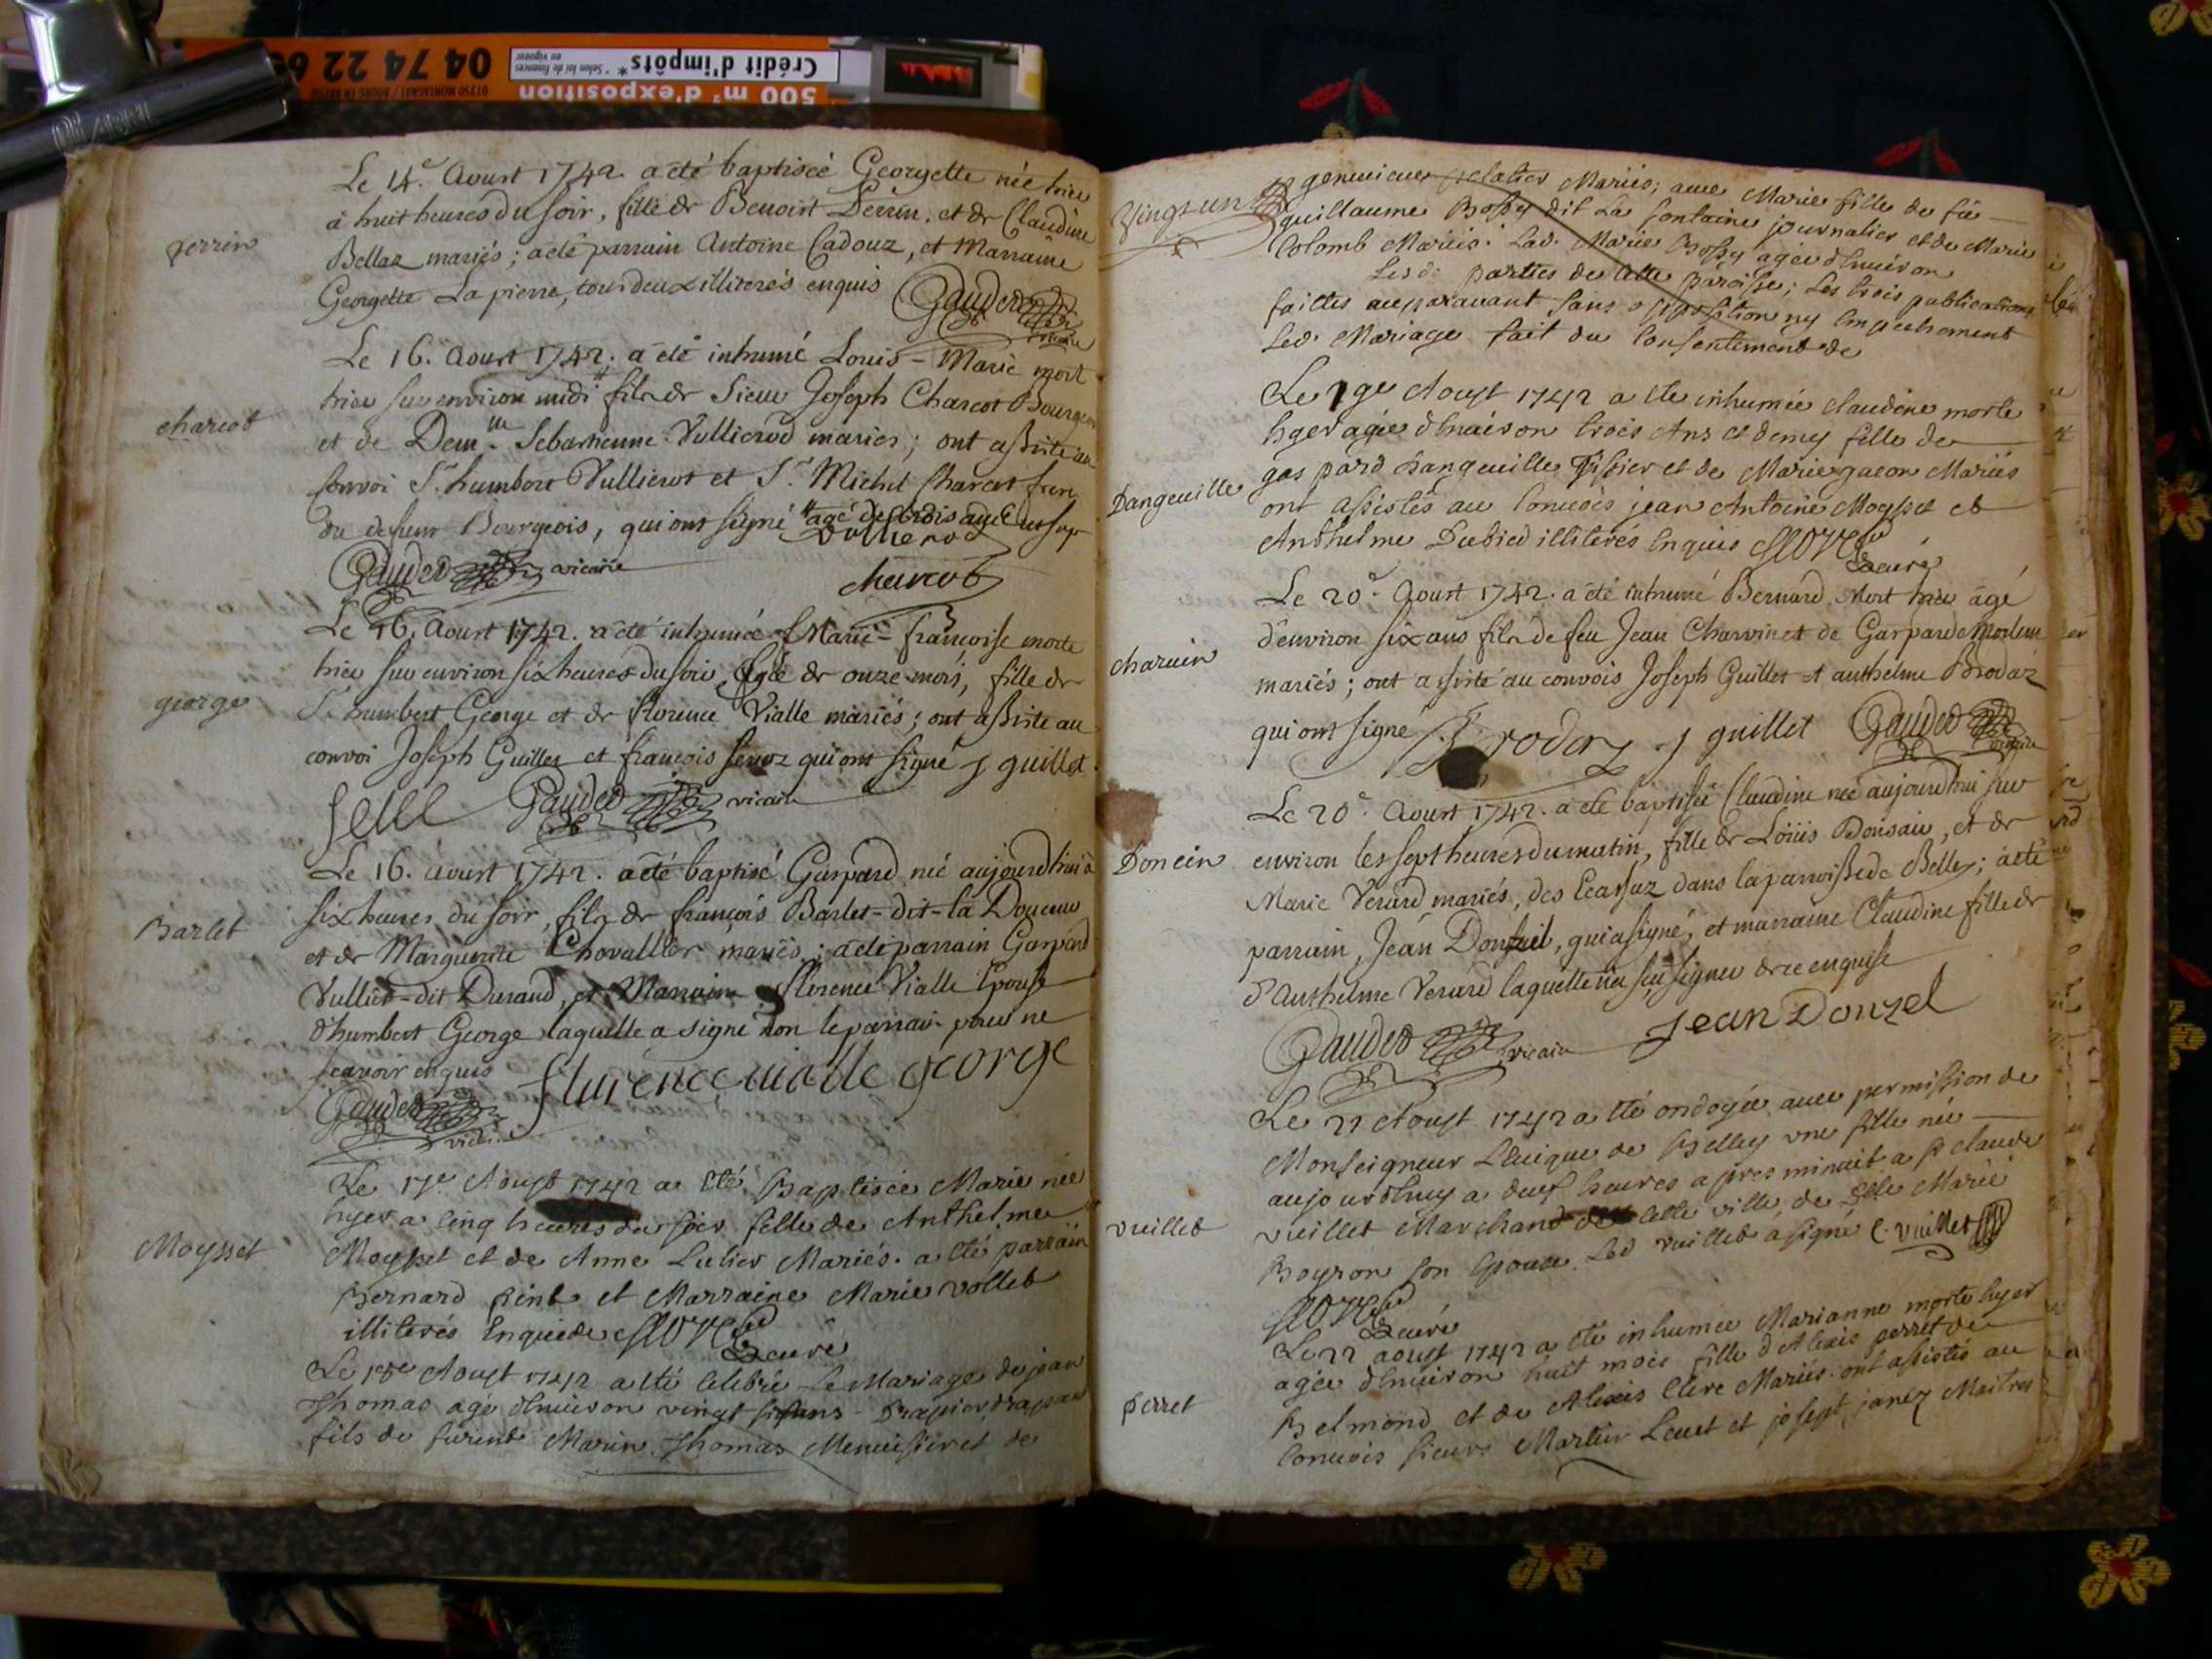 500 m² d'exposition
Crédit d'impôts *
04 74 22 6
Le 14.e Aoust 1742. a été baptiseé Georgette née hier
à huit heures du soir, fille de Benoist Perrin, et de Claudine
perrin
Bellaz mariés; a été parrain Antoine Cadouz, et Marraine
Georgette La pierre, tous deux illiterés enquis
Gauded vicaire
Le 16. Aoust 1742. a été inhumé Louis-Marie mort
hier sur environ midi fils de Sieur Joseph Charcot Bourgeois
charcot
et de Dem.lle Sebastienne Vullierod mariés; ont assisté au
convoi S.r humbert Vullierot et S.r Michel Charcot frere
du defunt Bourgeois, qui ont signé agé de trois ans
Vullierod
Gauded vicaire
charcot
Le 16. Aoust 1742. a été inhumée Marie-françoise morte
hier sur environ six heures du soir, agée de onze mois, fille de
george
S.r humbert George et de florence Vialle mariés; ont assisté au
convoi Joseph Guillet et françois qui ont signé j guillet
Gauded vicaire
Le 16. Aoust 1742. a été baptisé Gaspard né aujourdhui à
six heures du soir, fils de françois Barlet-dit-la Douceur
Barlet
et de Marguerite Chovallier mariés; a été parrain Gaspard
Vulliet-dit Durand, et Marraine florence Vialle Epouse
d'humbert George laquelle a signé non le parrain pour ne
scavoir enquis
florence vialle george
Gauded vicaire
Le 17e Aoust 1742 a été Baptisée Marie née
hyer a cinq heures du soir fille de Anthelme
Moysset
Moysset et de Anne Lulier Mariés. a été parrain
Bernard pint et Marraine Marie vollet
illiterés Enquis
curé
Le 18e Aoust 1742 a été celebré Le Mariage de jean
Thomas agé d'environ vingt six ans Drapier drapant
fils de furent Marin Thomas Menuisier et de
Vingt un
genevieve pelatier Mariés; avec Marie fille de fû
guillaume Bossy dit La fontaine journalier et de Marie
Colomb Mariés. Lad. Marie Bossy agée d'environ
Les d. parties de cette paroisse; Les trois publications
faittes auparavant sans opposition ny Empechement
Led. Mariage fait du Consentement de
Le 19e Aoust 1742 a été inhumée claudine morte
hyer agée d'environ trois Ans et demy fille de
Dangeville
gaspard Dangeuille Tissier et de Marie gueon Mariés
ont assistés au Convois jean Antoine Moysset et
Anthelme Dubied illiterés Enquis
curé
Le 20.e Aoust 1742. a été inhumé Bernard Mort hier âgé
d'environ six ans fils de feu Jean Charvin et de Gasparde
charuin
mariés; ont assisté au convois Joseph Guillet et anthelme Brodaz
qui ont signé Brodaz j guillet Gauded vicaire
Le 20.e Aoust 1742. a été baptisée Claudine née aujourdhui sur
Donein
environ les sept heures du matin, fille de Loüis Donsain, et de
Marie Verard mariés, des Ecassaz dans la parroisse de Belley; a été
parrain, Jean Donzel, qui a signé, et marraine Claudine fille de
d'Anthelme Verard laquelle n'a sçu signer de ce enquise
Gauded vicaire
jean Donzel
Le 22 Aoust 1742 a été ondoyée avec permission de
Monseigneur L'Evique de Belley une fille née
aujourdhuy a deux heures apres minuit a S.r claude
vuillet
vuillet Marchand de cette ville, de Delle Marie
Boyron son Epouse. Led vuillet a signé C. vuillet
curé
Le 22 aoust 1742 a été inhumée Marianne morte hyer
agée d'environ huit mois fille d'Alexis perret de
perret
Belmond et de Alexis Clere Mariés. ont assistés au
Convois sieurs Martin Levet et josept janez Maitres